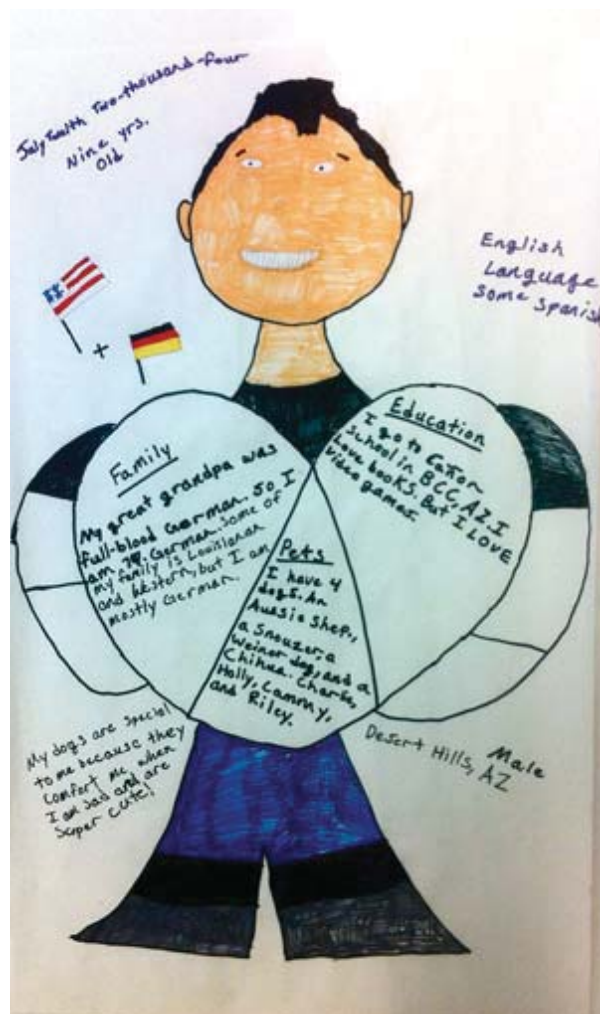 July Twelth Two-thousand-four
Nine yrs.
Old
English
Language
Some Spanish
+
Family
My great grandpa was
full-blood German. So I
am German. Some of
my family is Louisianan
and Western, but I am
mostly German.
Education
I go to
school in BCC, AZ. I
Love books. But I LOVE
video games.
Pets
I have 4
dogs. An
Aussie Shep.,
a Snouzer, a
Weiner dog, and a
Chihua.
Holly, Cammy,
and Riley.
My dogs are special
to me because they
comfort me when
I am sad and are
super cute!
Desert Hills, AZ
Male